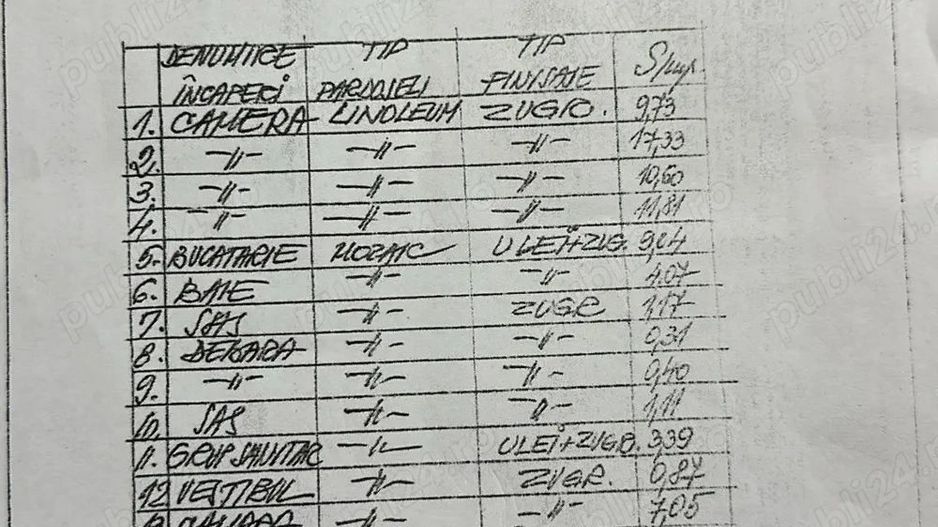 DENUMIRE ÎNCAPERI TIP PARDOSELI TIP FINISAJE S/mp.
1. CAMERA LINOLEUM ZUGR. 9,73
2. -//- -//- -//- 17,33
3. -//- -//- -//- 10,60
4. -//- -//- -//- 11,81
5. BUCATARIE MOZAIC ULEI+ZUG.
6. BAIE -//- -//- 4,07
7. SAS -//- ZUGR 1,17
8. DEBARA -//- -//- 0,31
9. -//- -//- -//- 0,40
10. SAS -//- -//- 1,11
11. GRUP SANITAR -//- ULEI+ZUGR. 3,39
12 VESTIBUL -//- ZUGR. 0,87
CAMARA -//- -//- 7,05
publi24.ro